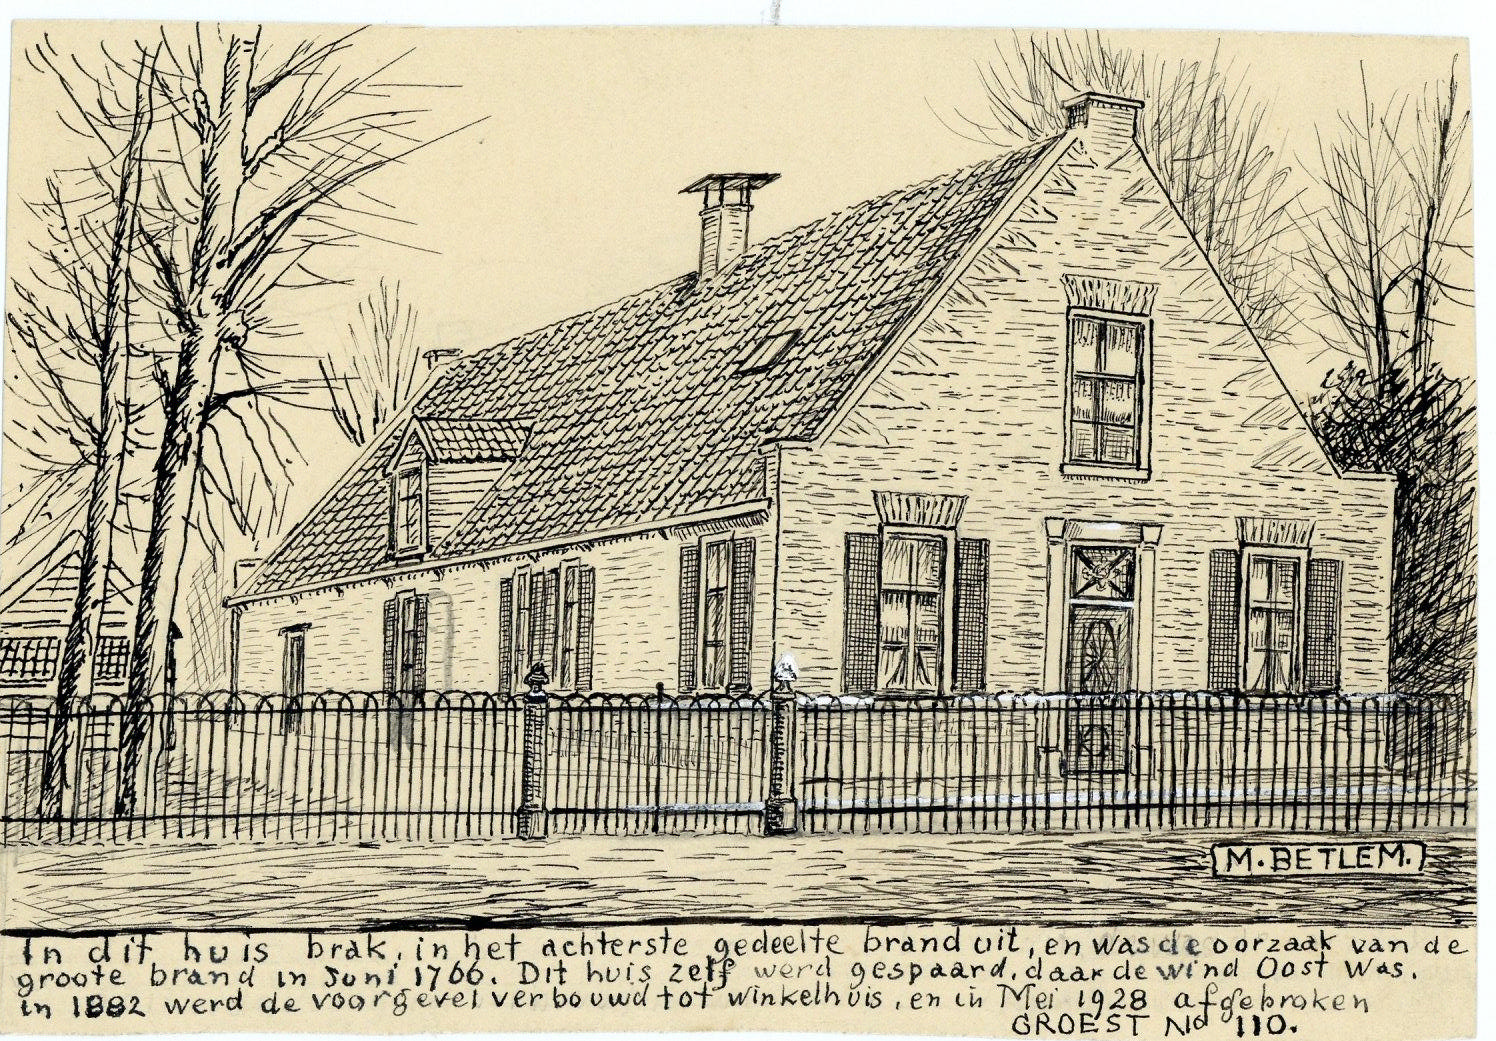 M. BETLEM.
In dit huis brak, in het achterste gedeelte brand uit, en was de oorzaak van de
groote brand in Juni 1766. Dit huis zelf werd gespaard, daar de wind Oost was.
in 1882 werd de voorgevel verbouwd tot winkelhuis, en in Mei 1928 afgebroken
GROEST No 110.